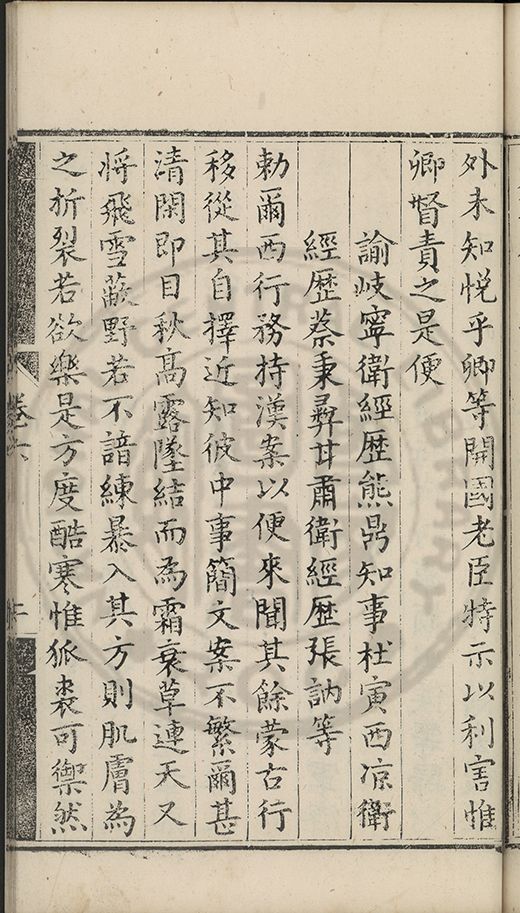 外未知悅乎卿等開國老臣特示以利害惟
卿督責之是便
諭岐寧衛經歷熊鼎知事杜寅西凉衛
經歷蔡秉彝甘肅衛經歷張訥等
勅爾西行務持漢案以便來聞其餘蒙古行
移從其自擇近知彼中事簡文案不繁爾甚
清閑即目秋高露墜結而為霜衰草連天又
將飛雪蔽野若不諳練暴入其方則肌膚為
之折裂若欲樂是方度酷寒惟狐裘可禦然
卷六